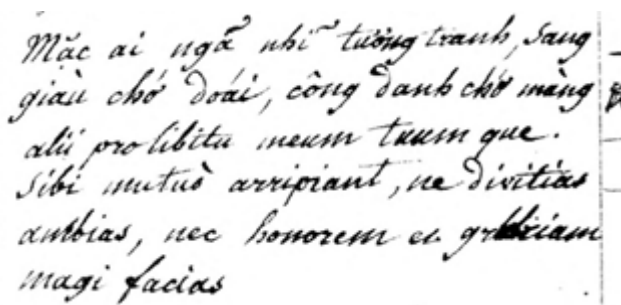 Mặc ai ngã nhĩ tương tranh, sang
giàu chớ đoái, công danh chớ màng
alii pro libitu meum tuumque.
sibi mutuò arripiant, ne divitias
ambias, nec honorem et gloriam
magi facias